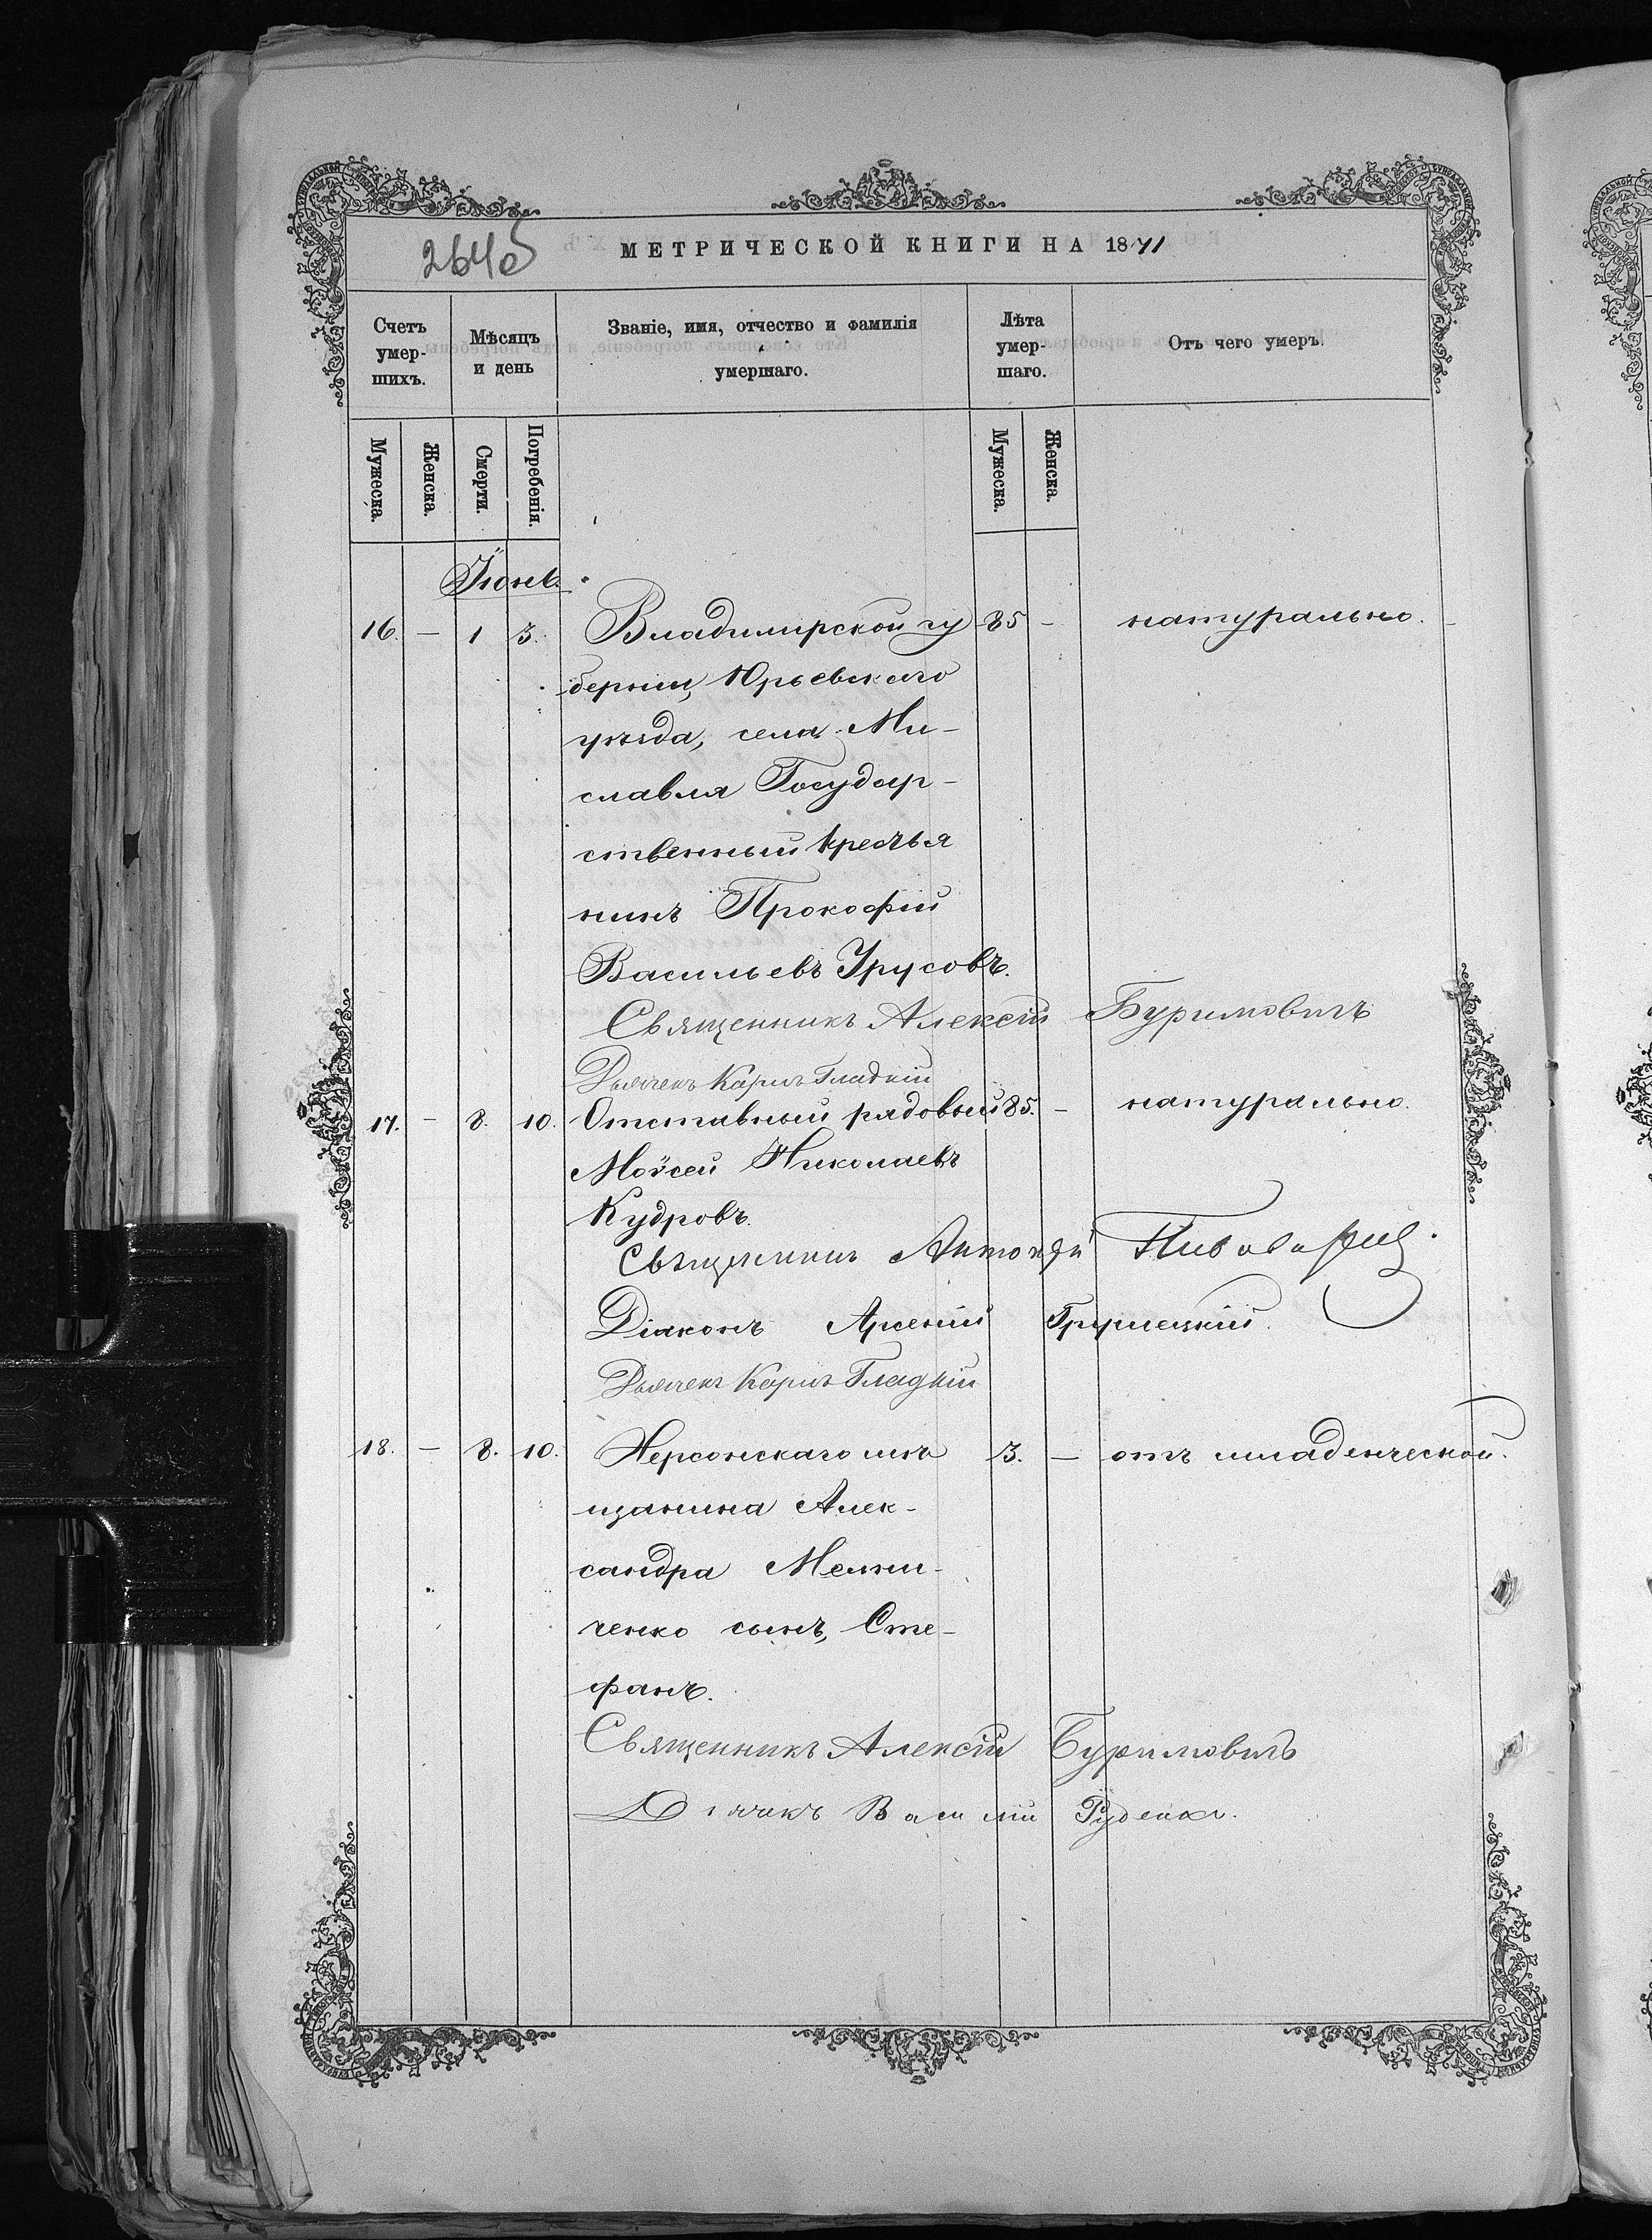 264об
МЕТРИЧЕСКОЙ КНИГИ НА 1871
Счетъ умер-шихъ.
Мѣсяцъ и день
Званіе, имя, отчество и фамилія умершаго.
Лѣта умер-шаго.
Отъ чего умеръ.
Мужеска. Женска. Смерти. Погребенія. Мужеска. Женска.
Іюнь.
16. – 1 3. Владимирской гу 85 – натурально.
берніи, Юрьевскаго
уѣзда, села Ми-
славля Государ-
ственный крестья
нинъ Прокофій
Васильевъ Урусовъ.
Священникъ Алексій Буримовичъ
Дьячекъ Карпъ Гладкій
17. – 8. 10. Отставный рядовый 85. – натурально.
Мойсей Николаевъ
Кудровъ.
Священникъ Антоній
Діаконъ Арсеній
Дьячекъ Карпъ Гладкій
18. – 8. 10. Херсонскаго мѣ 3. – отъ младенческой.
щанина Алек-
сандра Мельни-
ченко сынъ, Сте-
фанъ.
Священникъ Алексій Буримовичъ
Дьячекъ Василій Руденко.